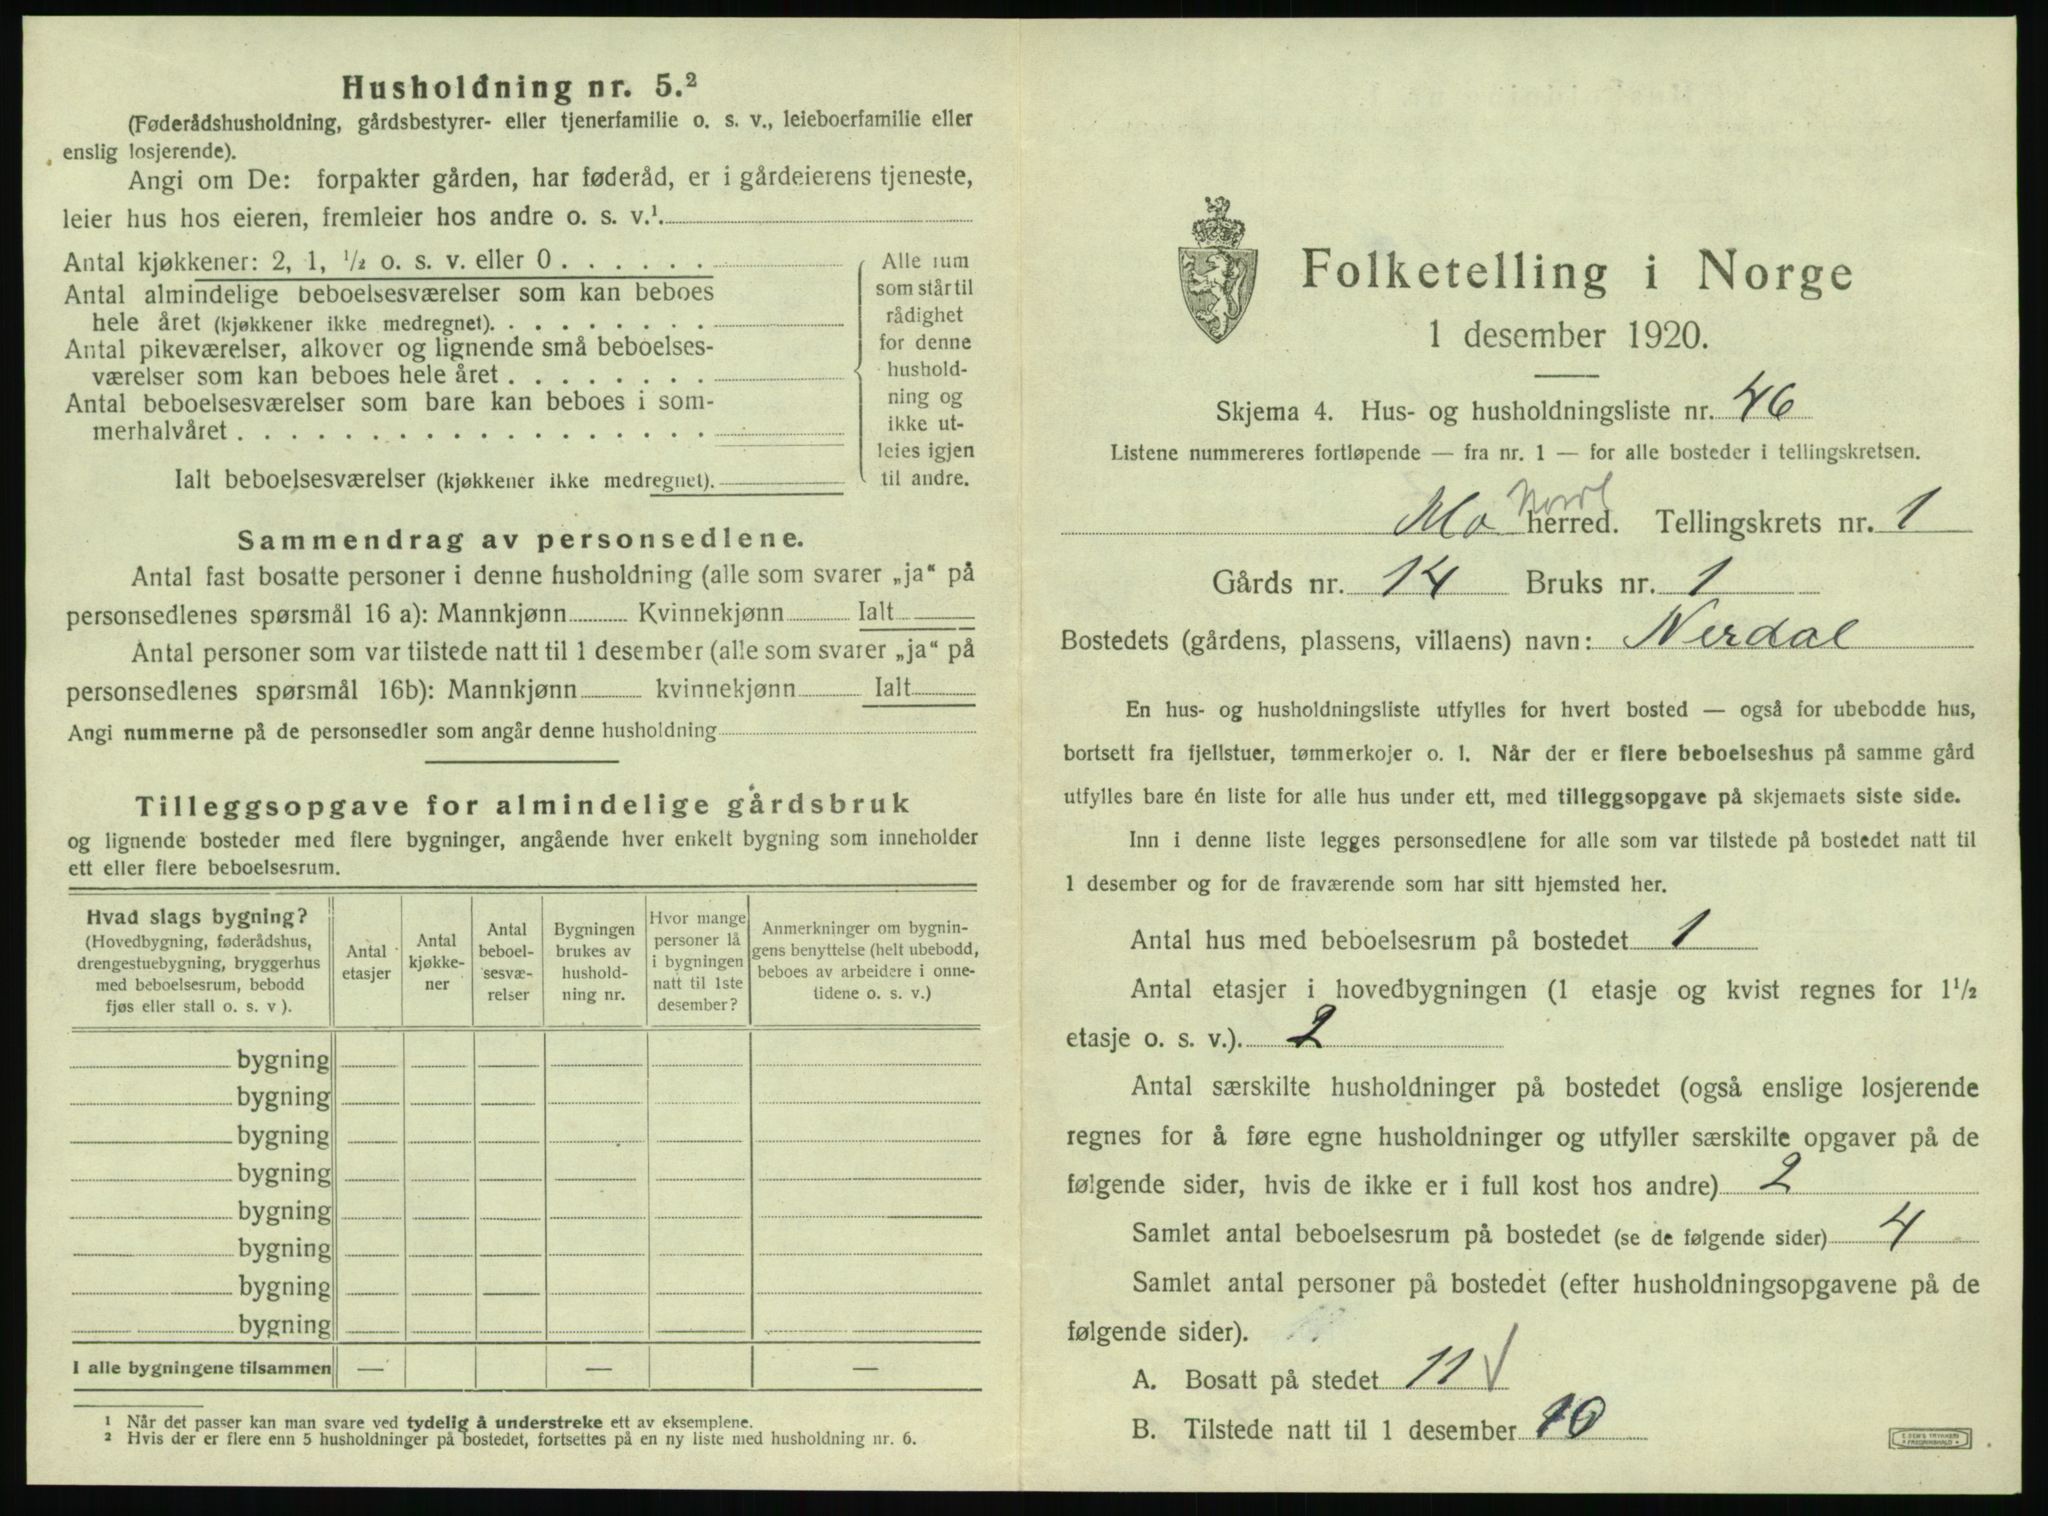 Husholdning nr. 5.²
(Føderådshusholdning, gårdsbestyrer- eller tjenerfamilie o. s. v., leieboerfamilie eller
enslig losjerende).
Angi om De: forpakter gården, har føderåd, er i gårdeierens tjeneste,
leier hus hos eieren, fremleier hos andre o. s. v.¹
Antal kjøkkener: 2, 1, ½ o. s. v. eller 0 . . . . . .
Antal almindelige beboelsesværelser som kan beboes
hele året (kjøkkener ikke medregnet). . . . . . . . .
Antal pikeværelser, alkover og lignende små beboelses-
værelser som kan beboes hele året . . . . . . . .
Antal beboelsesværelser som bare kan beboes i som-
merhalvåret . . . . . . . . . . . . . . . . . .
Ialt beboelsesværelser (kjøkkener ikke medregnet).
Alle rum
som står til
rådighet
for denne
hushold-
ning og
ikke ut-
leies igjen
til andre.
Sammendrag av personsedlene.
Antal fast bosatte personer i denne husholdning (alle som svarer „ja“ på
personsedlenes spørsmål 16 a): Mannkjønn Kvinnekjønn Ialt
Antal personer som var tilstede natt til 1 desember (alle som svarer „ja“ på
personsedlenes spørsmål 16b): Mannkjønn kvinnekjønn Ialt
Angi nummerne på de personsedler som angår denne husholdning
Tilleggsopgave for almindelige gårdsbruk
og lignende bosteder med flere bygninger, angående hver enkelt bygning som inneholder
ett eller flere beboelsesrum.
Hvad slags bygning?
(Hovedbygning, føderådshus,
drengestuebygning, bryggerhus
med beboelsesrum, bebodd
fjøs eller stall o. s. v ).
Antal
etasjer
Antal
kjøkke-
ner
Antal
beboel-
sesvæ-
relser
Bygningen
brukes av
hushold-
ning nr.
Hvor mange
personer lå
i bygningen
natt til 1ste
desember?
Anmerkninger om bygnin-
gens benyttelse (helt ubebodd,
beboes av arbeidere i onne-
tidene o. s. v.)
bygning
bygning
bygning
bygning
bygning
bygning
bygning
bygning
I alle bygningene tilsammen — — —
¹ Når det passer kan man svare ved tydelig å understreke ett av eksemplene.
² Hvis der er flere enn 5 husholdninger på bostedet, fortsettes på en ny liste med husholdning nr. 6.
Folketelling i Norge
1 desember 1920.
Skjema 4. Hus- og husholdningsliste nr. 46
Listene nummereres fortløpende — fra nr. 1 — for alle bosteder i tellingskretsen.
Nordl
Mo herred. Tellingskrets nr. 1
Gårds nr. 14 Bruks nr. 1
Bostedets (gårdens, plassens, villaens) navn: Nerdal
En hus- og husholdningsliste utfylles for hvert bosted — også for ubebodde hus,
bortsett fra fjellstuer, tømmerkojer o. l. Når der er flere beboelseshus på samme gård
utfylles bare én liste for alle hus under ett, med tilleggsopgave på skjemaets siste side.
Inn i denne liste legges personsedlene for alle som var tilstede på bostedet natt til
1 desember og for de fraværende som har sitt hjemsted her.
Antal hus med beboelsesrum på bostedet 1
Antal etasjer i hovedbygningen (1 etasje og kvist regnes for 1½
etasje o. s. v.). 2
Antal særskilte husholdninger på bostedet (også enslige losjerende
regnes for å føre egne husholdninger og utfyller særskilte opgaver på de
følgende sider, hvis de ikke er i full kost hos andre) 2
Samlet antal beboelsesrum på bostedet (se de følgende sider) 4
Samlet antal personer på bostedet (efter husholdningsopgavene på de
følgende sider).
A. Bosatt på stedet 11 √
B. Tilstede natt til 1 desember 10